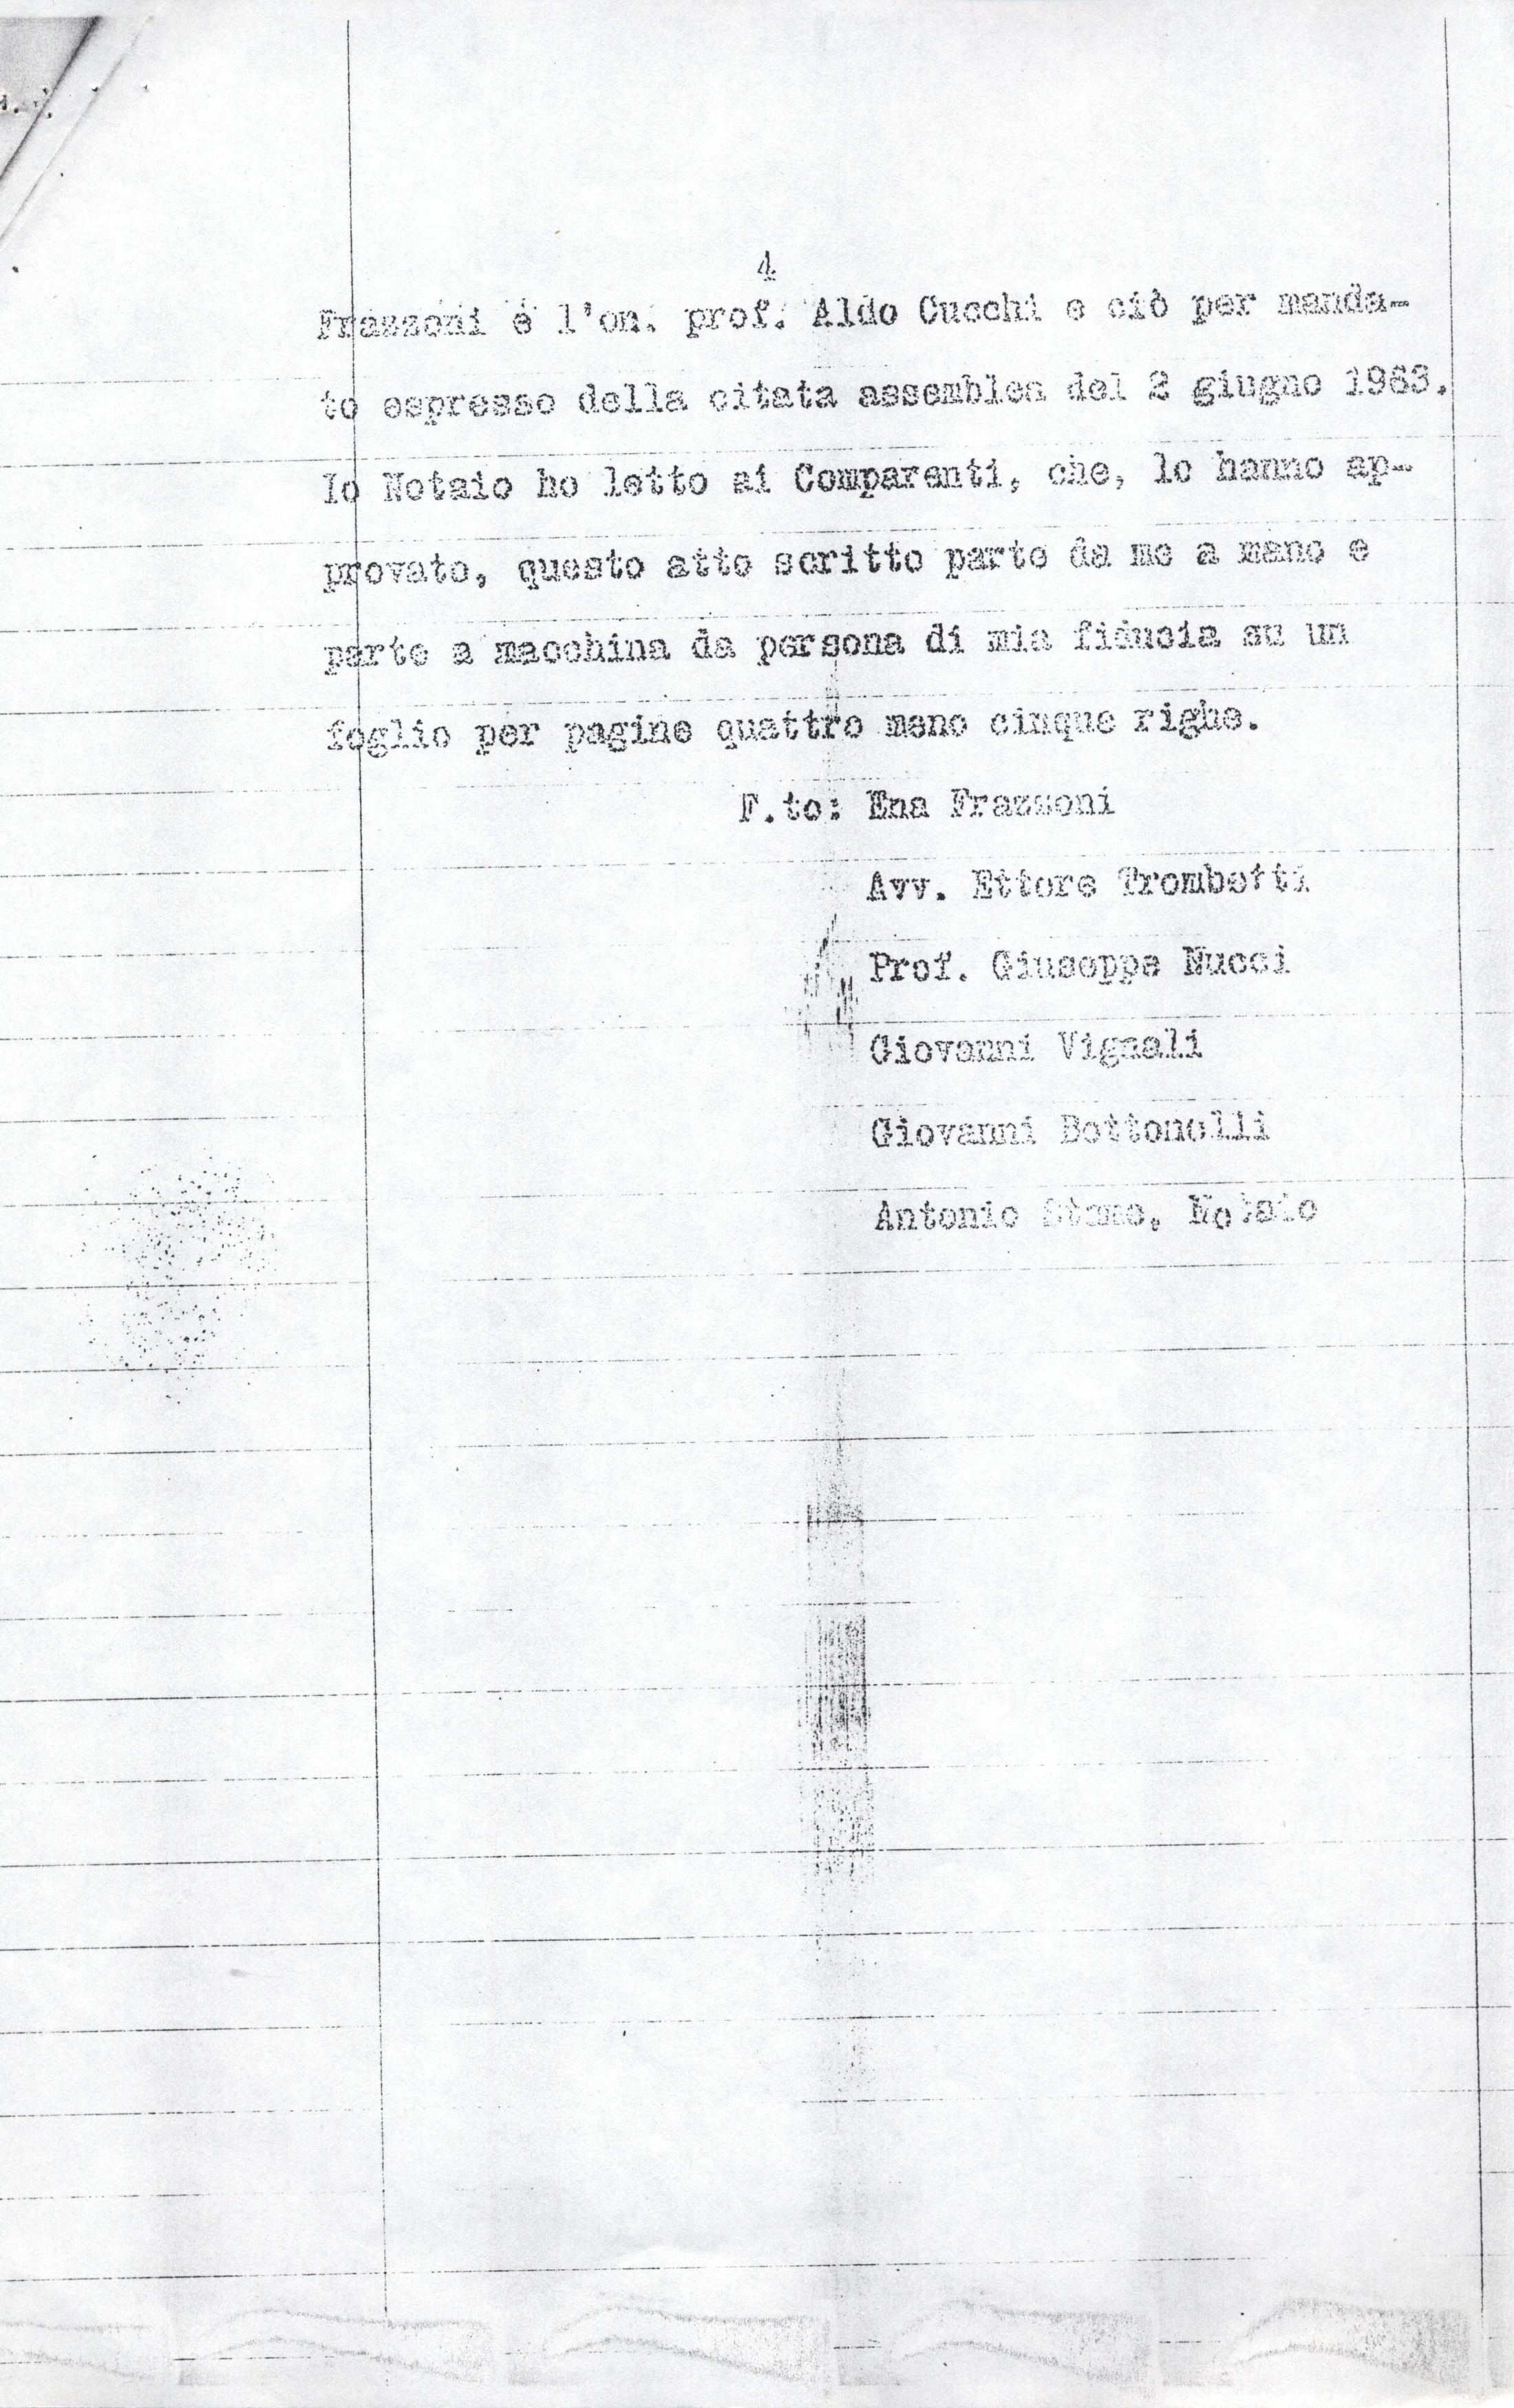 4
Frazzoni e l'on. prof. Aldo Cucchi e ciò per manda-
to espresso della citata assemblea del 2 giugno 1963.
Io Notaio ho letto ai Comparenti, che, lo hanno ap-
provato, questo atto scritto parte da me a mano e
parte a macchina da persona di mia fiducia su un
foglio per pagine quattro meno cinque righe.
F.to: Ena Frazzoni
Avv. Ettore Trombetti
Prof. Giuseppe Nucci
Giovanni Vignali
Giovanni Bottonelli
Antonio Stame, Notaio